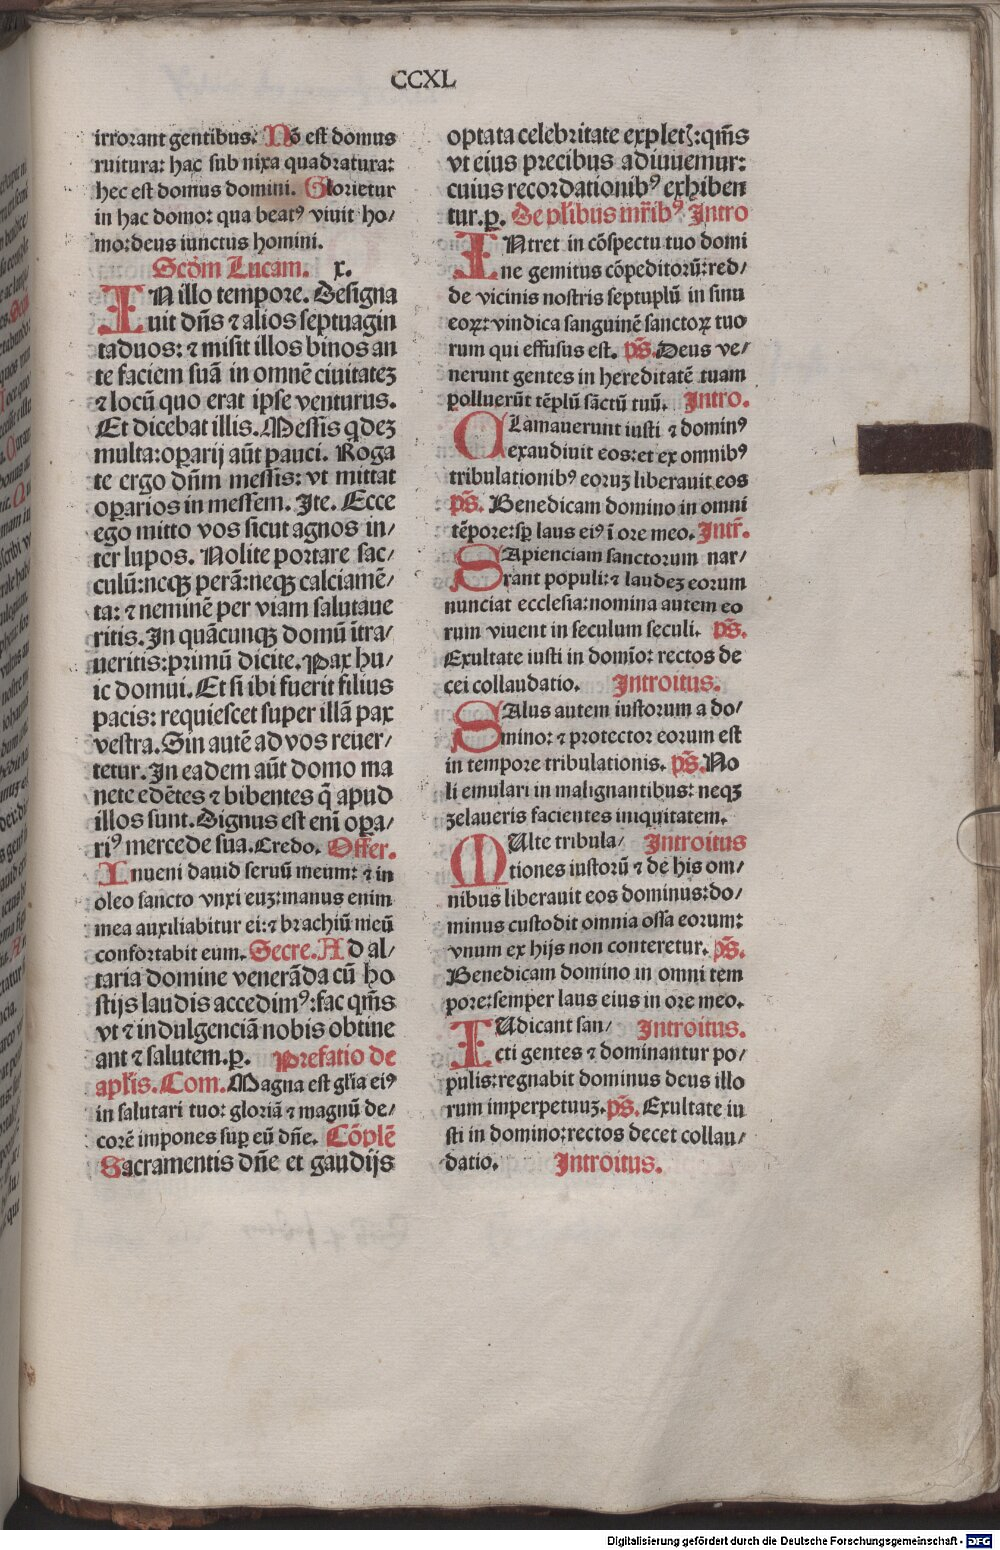 CCXL
irrorant gentibus. Nō est domus
ruitura: hac sub nixa quadratura:
hec est domus domini. Glorietur
in hac domo: qua beatꝰ viuit ho/
mo: deus iunctus homini.
Scd̄m Lucam. x.
IN illo tempore. Designa
uit dn̄s ⁊ alios septuagin
taduos: ⁊ misit illos binos an
te faciem suā in omnē ciuitatez
⁊ locū quo erat ipse venturus.
Et dicebat illis. Messis qdez
multa: oꝑarij aūt pauci. Roga
te ergo dn̄m messis: vt mittat
oꝑarios in messem. Ite. Ecce
ego mitto vos sicut agnos in/
ter lupos. Nolite portare sac/
culū: neqꝫ perā: neqꝫ calciamē/
ta: ⁊ neminē per viam salutaue
ritis. In quācunqꝫ domū ītra/
ueritis: primū dicite. Pax hu/
ic domui. Et si ibi fuerit filius
pacis: requiescet super illā pax
vestra. Sin autē ad vos reuer/
tetur. In eadem aūt domo ma
nete edētes ⁊ bibentes q̄ apud
illos sunt. Dignus est eni oꝑa/
riꝰ mercede sua. Credo. Offer.
Inueni dauid seruū meum: ⁊ in
oleo sancto vnxi euz: manus enim
mea auxiliabitur ei: ⁊ brachiū meū
confortabit eum. Secre. Ad al/
taria domine venerāda cū ho
stijs laudis accedimꝰ: fac qm̄s
vt ⁊ indulgenciā nobis obtine
ant ⁊ salutem. ꝑ. Prefatio de
apl̄is. Com. Magna est gl̄ia eiꝰ
in salutari tuo: gloriā ⁊ magnū de/
corē impones suꝑ eū dn̄e. Cōplē
Sacramentis dn̄e et gaudijs
optata celebritate expletꝭ: qm̄s
vt eius precibus adiuuemur:
cuius recordationibꝰ exhiben
tur. ꝑ. De pl̄ibus mr̄ibꝰ. Intro
INtret in cōspectu tuo domi
ne gemitus cōpeditorū: red/
de vicinis nostris septuplū in sinu
eoꝝ: vindica sanguinē sanctoꝝ tuo
rum qui effusus est. ps̄. Deus ve/
nerunt gentes in hereditatē tuam
polluerūt tēplū sāctū tuū. Intro.
CLamauerunt iusti ⁊ dominꝰ
exaudiuit eos: et ex omnibꝰ
tribulationibꝰ eoruz liberauit eos
ps̄. Benedicam domino in omni
tēpore: sꝑ laus eiꝰ ī ore meo. Intr̄.
SApienciam sanctorum nar/
rant populi: ⁊ laudez eorum
nunciat ecclesia: nomina autem eo
rum viuent in seculum seculi. ps̄.
Exultate iusti in domīo: rectos de
cei collaudatio. Introitus.
SAlus autem iustorum a do/
mino: ⁊ protector eorum est
in tempore tribulationis. ps̄. No
li emulari in malignantibus: neqꝫ
zelaueris facientes iniquitatem.
MUlte tribula/ Introitus
tiones iustorū ⁊ de his om/
nibus liberauit eos dominus: do/
minus custodit omnia ossa eorum:
vnum ex hijs non conteretur. ps̄.
Benedicam domino in omni tem
pore: semper laus eius in ore meo.
IUdicant san/ Introitus.
cti gentes ⁊ dominantur po/
pulis: regnabit dominus deus illo
rum imperpetuuz. ps̄. Exultate iu
sti in domino: rectos decet collau/
datio. Introitus.
Digitalisierung gefördert durch die Deutsche Forschungsgemeinschaft - DFG